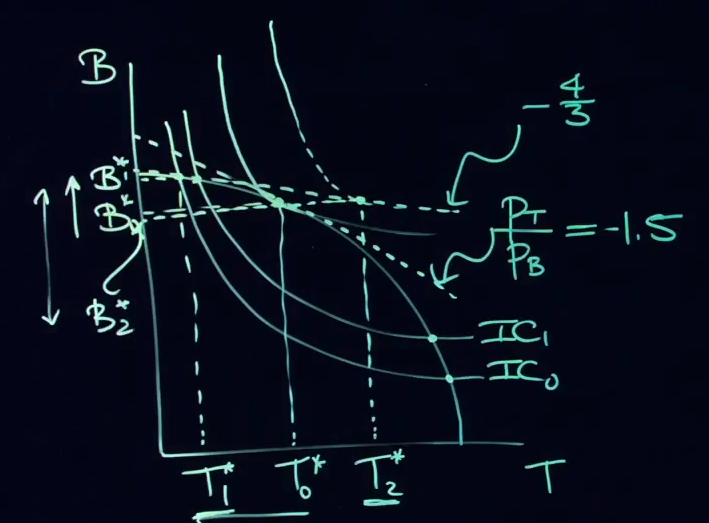 B
- 4/3
B₁*
B*
P_T/P_B = -1.5
B₂*
IC₁
IC₀
T₁* T₀* T₂* T